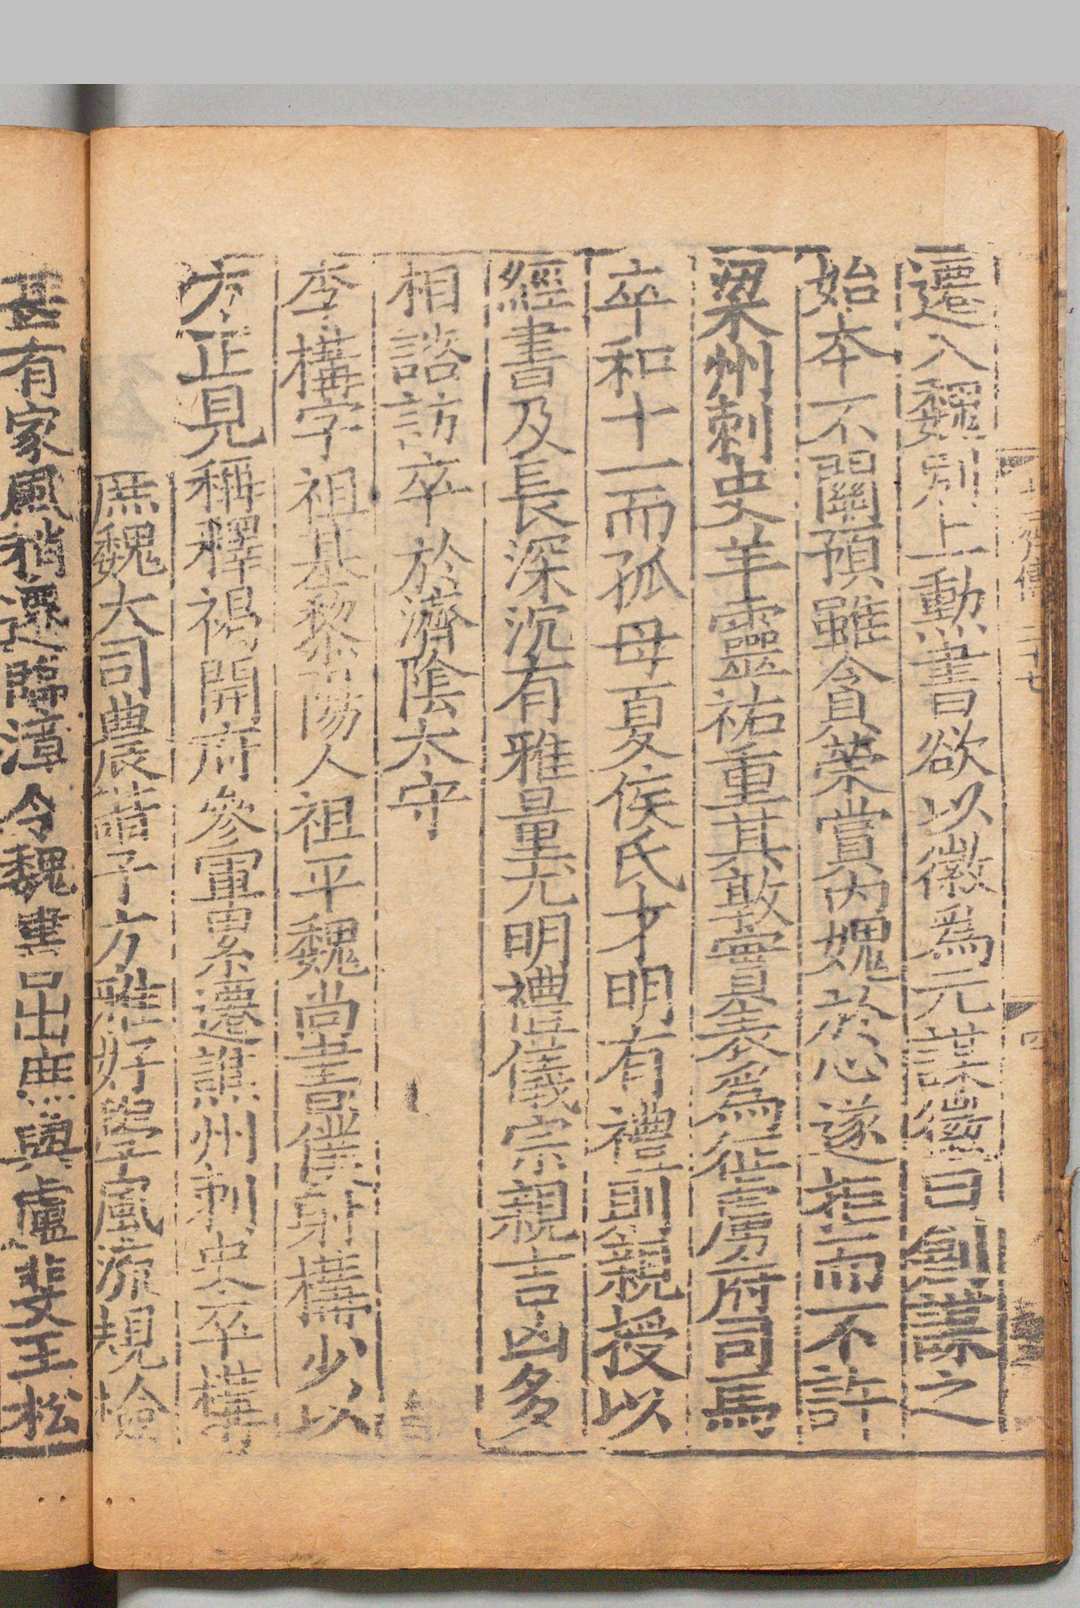 遷入魏別上勳書欲以徽爲元謀徽曰創謀之
始本不關預雖貪榮賞內媿於心遂拒而不許
梁州刺史羊靈祐重其敦實表爲征虜府司馬
卒和十一而孤母夏侯氏才明有禮則親授以
經書及長深沉有雅量尤明禮儀宗親吉凶多
相諮訪卒於濟陰太守
李構字祖基黎陽人祖平魏尚書僕射構少以
方正見稱釋褐開府參軍累遷譙州刺史卒構
庶魏大司農諧子方雅好學風流規檢
甚有家風稍遷臨漳令魏書出庶與盧斐王松